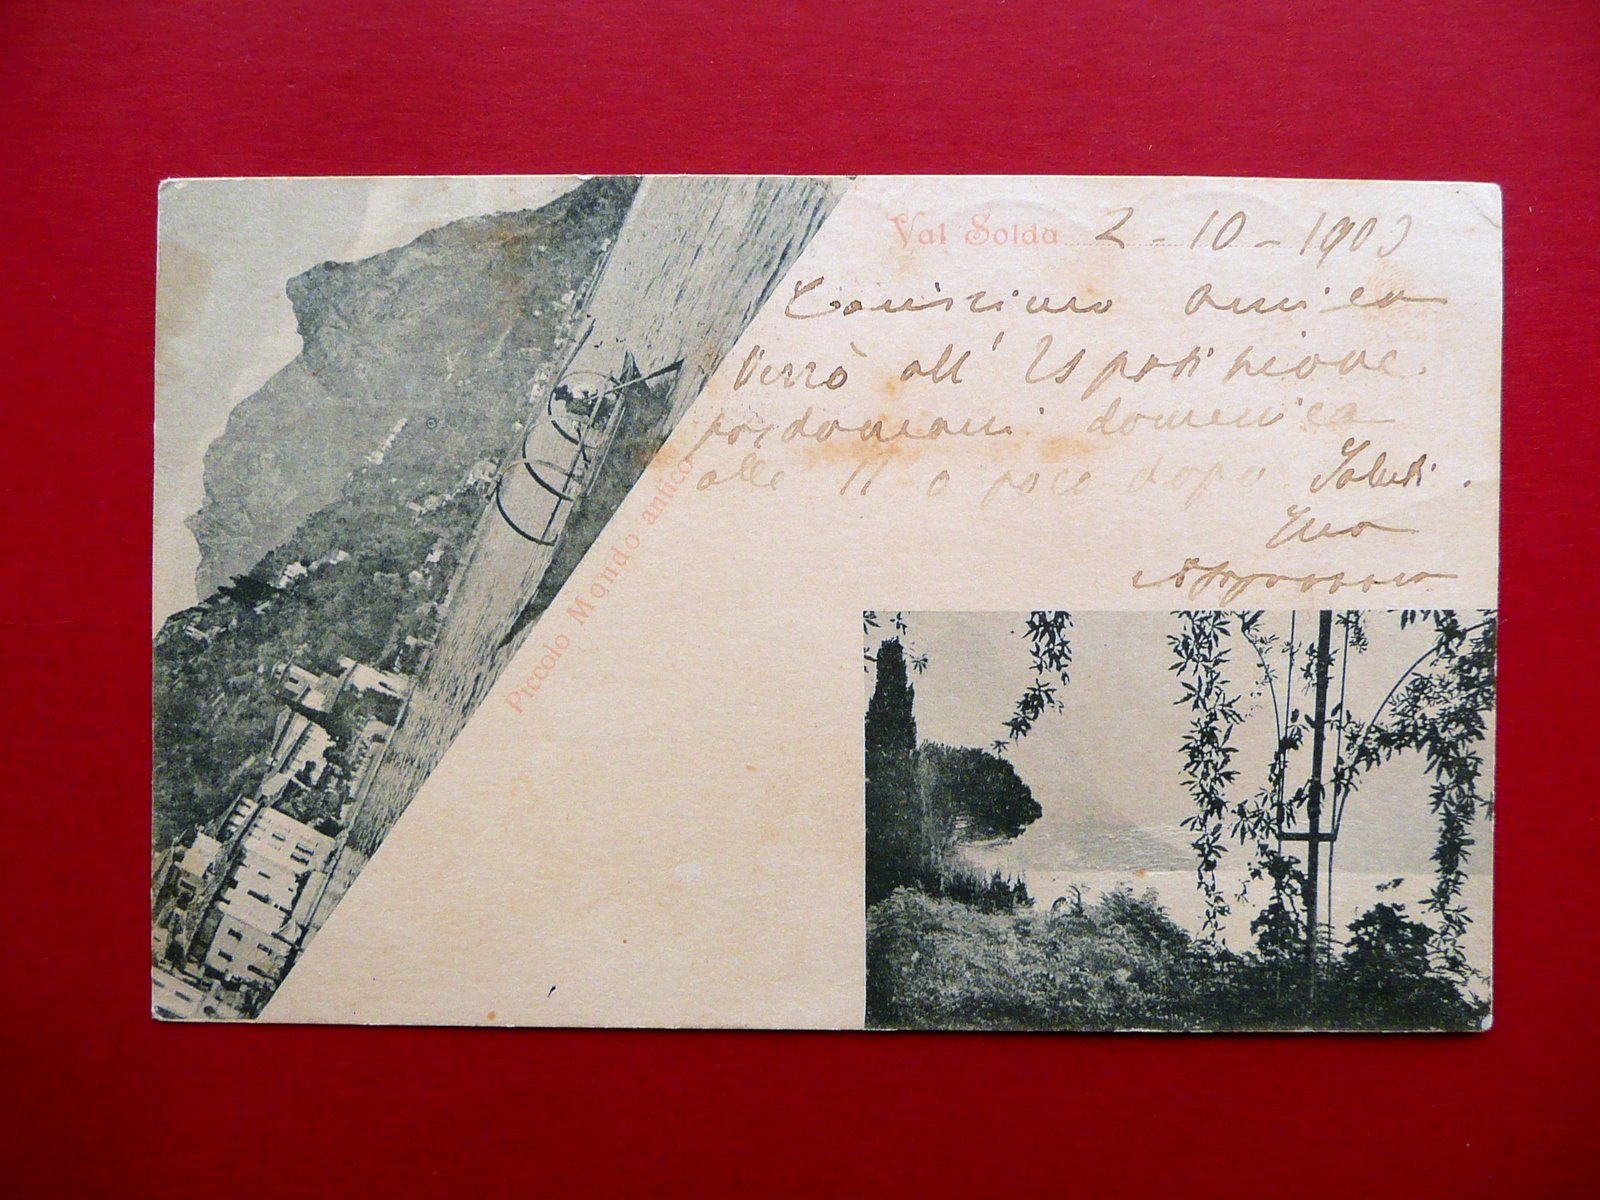 Val Solda 2-10-1903
Carissima amica
Verrò all'Esposizione
posdomani domenica
alle 11 o poco dopo Saluti.
Sua
Piccolo Mondo antico